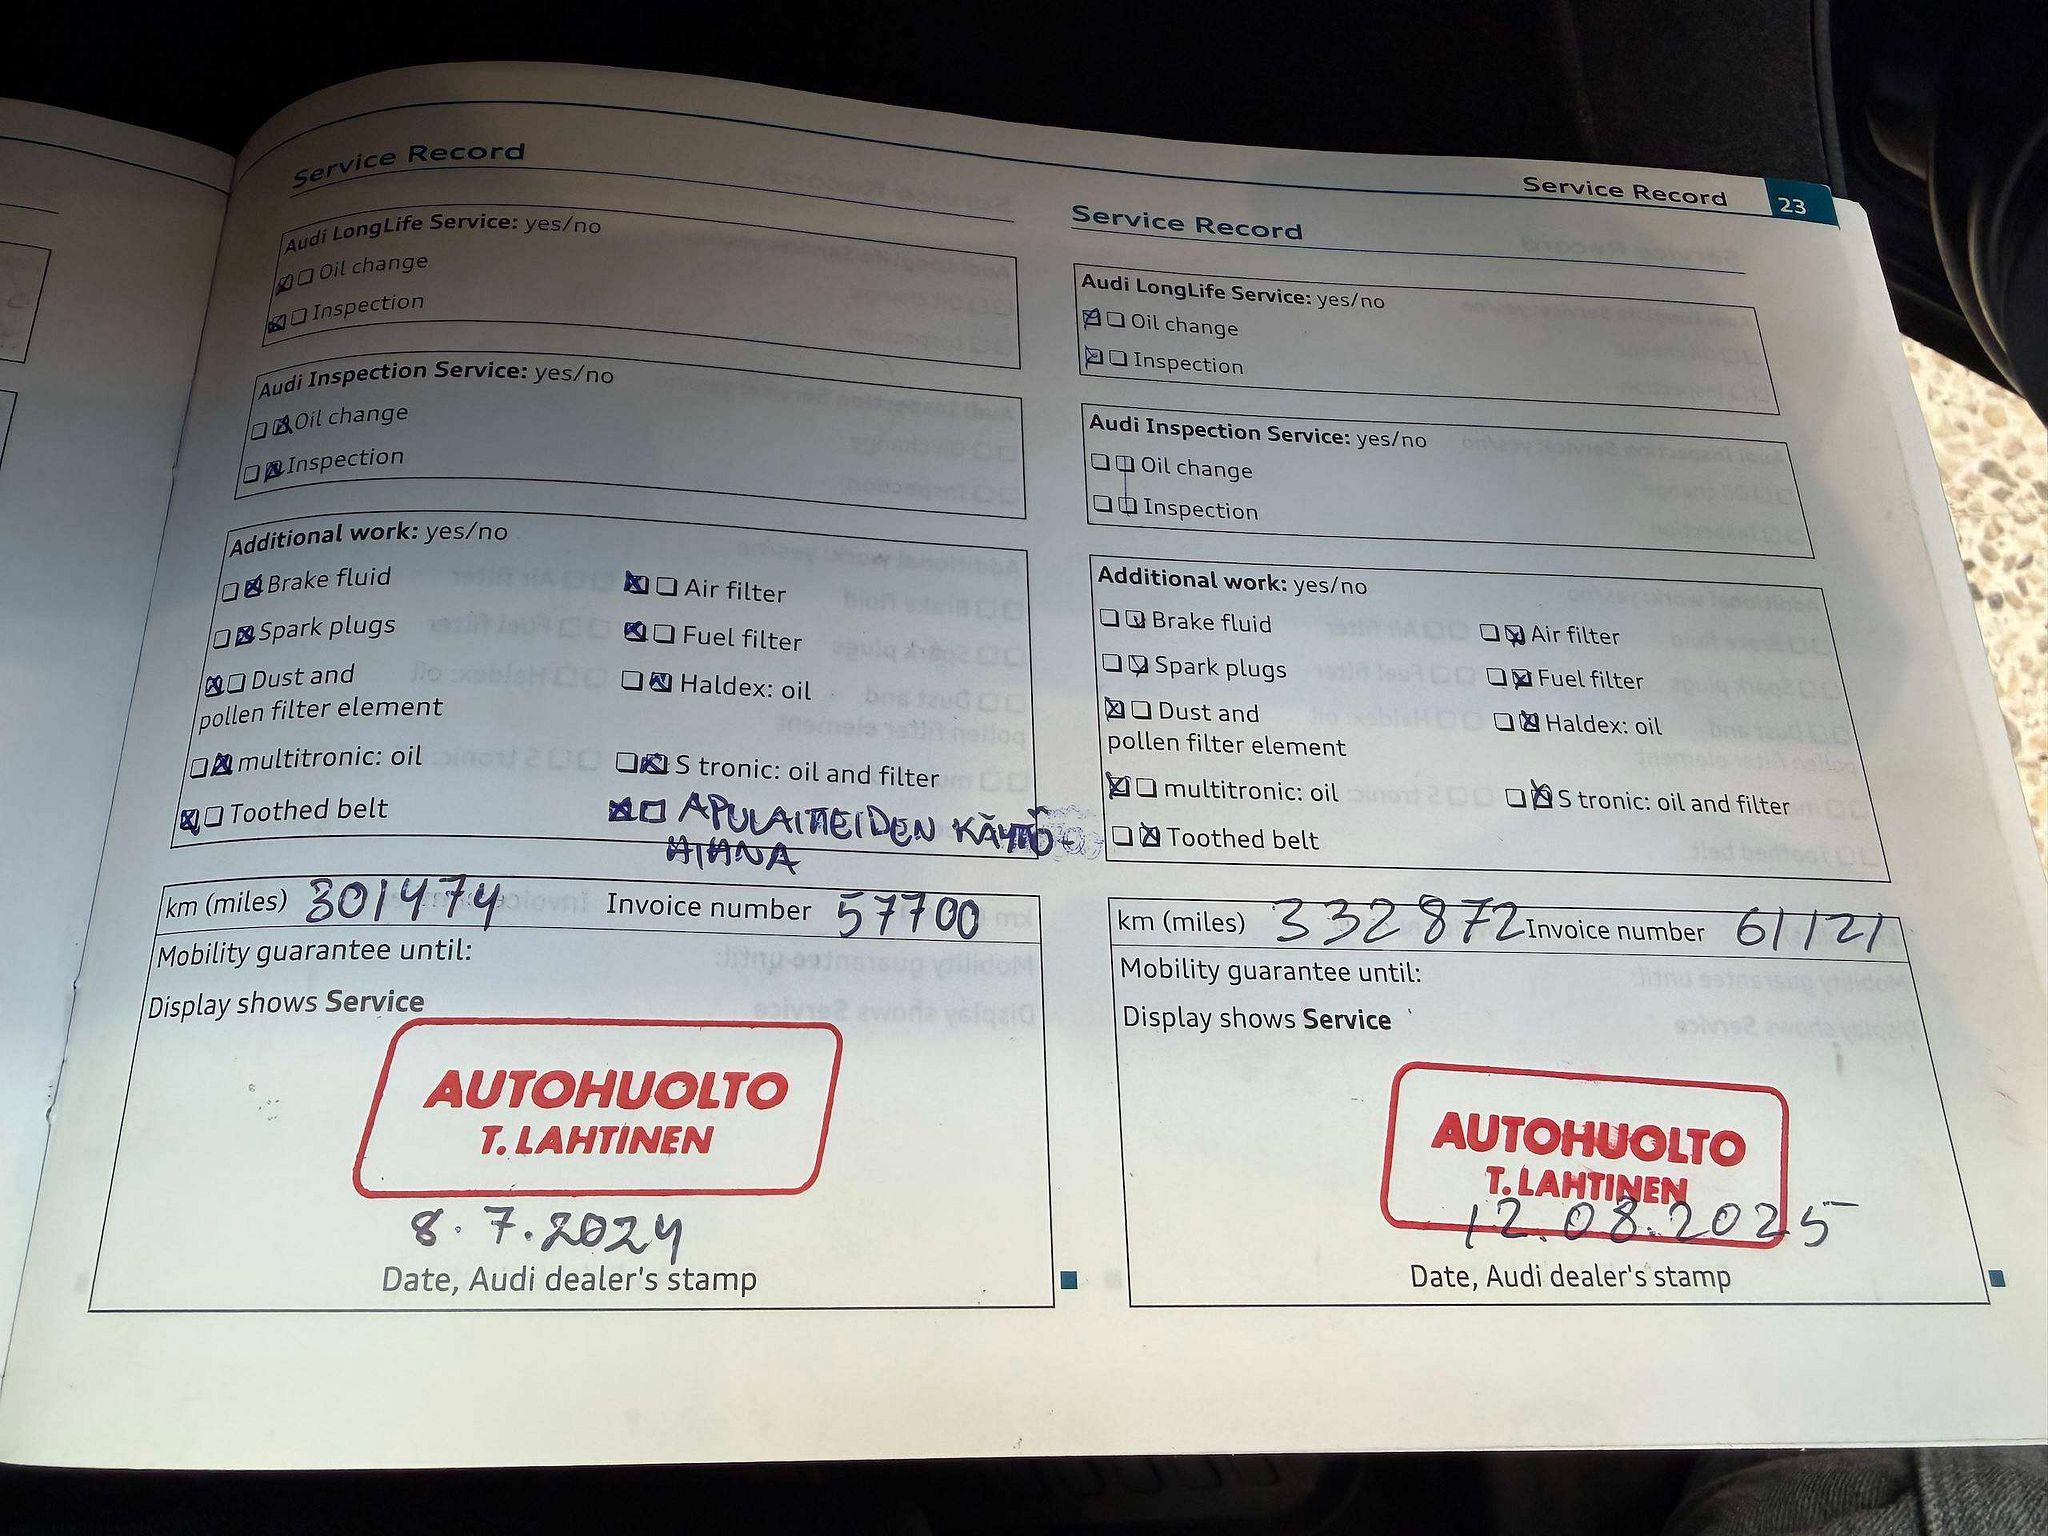 Service Record
Audi LongLife Service: yes/no
Oil change
Inspection
Audi Inspection Service: yes/no
Oil change
Inspection
Additional work: yes/no
Brake fluid
Air filter
Spark plugs
Fuel filter
Dust and
pollen filter element
Haldex: oil
multitronic: oil
S tronic: oil and filter
Toothed belt
APULAITTEIDEN KÄYTTÖ-
HIHNA
km (miles) 301474 Invoice number 57700
Mobility guarantee until:
Display shows Service
AUTOHUOLTO
T. LAHTINEN
8.7.2024
Date, Audi dealer's stamp
Service Record 23
Service Record
Audi LongLife Service: yes/no
Oil change
Inspection
Audi Inspection Service: yes/no
Oil change
Inspection
Additional work: yes/no
Brake fluid
Air filter
Spark plugs
Fuel filter
Dust and
pollen filter element
Haldex: oil
multitronic: oil
S tronic: oil and filter
Toothed belt
km (miles) 332872 Invoice number 61121
Mobility guarantee until:
Display shows Service
AUTOHUOLTO
T. LAHTINEN
12.08.2025
Date, Audi dealer's stamp